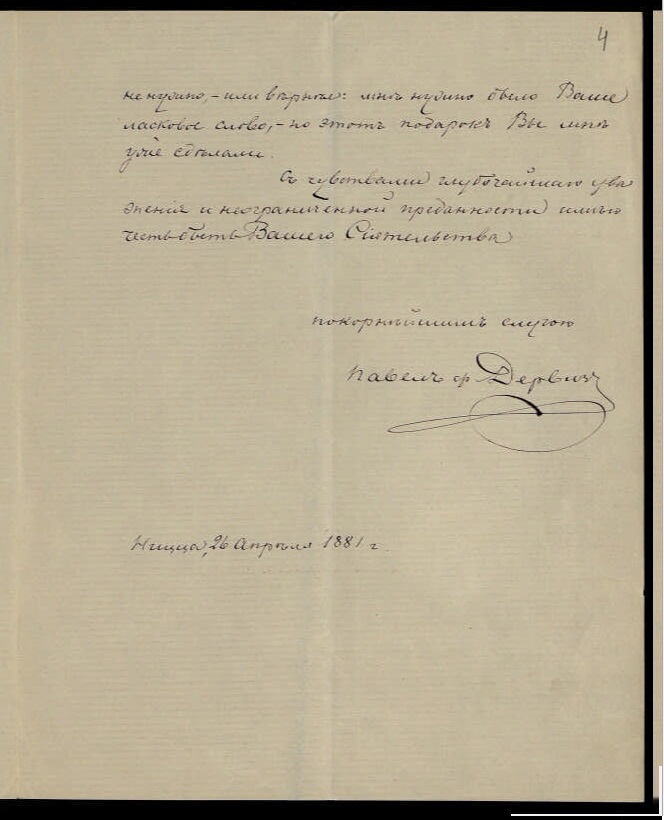 4
не нужно, - или вѣрнѣе: мнѣ нужно было Ваше
ласковое слово, - но этотъ подарокъ Вы мнѣ
уже сдѣлали.
Съ чувствами глубочайшаго ува
женія и неограниченной преданности имѣю
честь быть Вашего Сіятельства
покорнѣйшимъ слугою
Павелъ ф. Дервизъ
Ницца, 26 Апрѣля 1881 г.